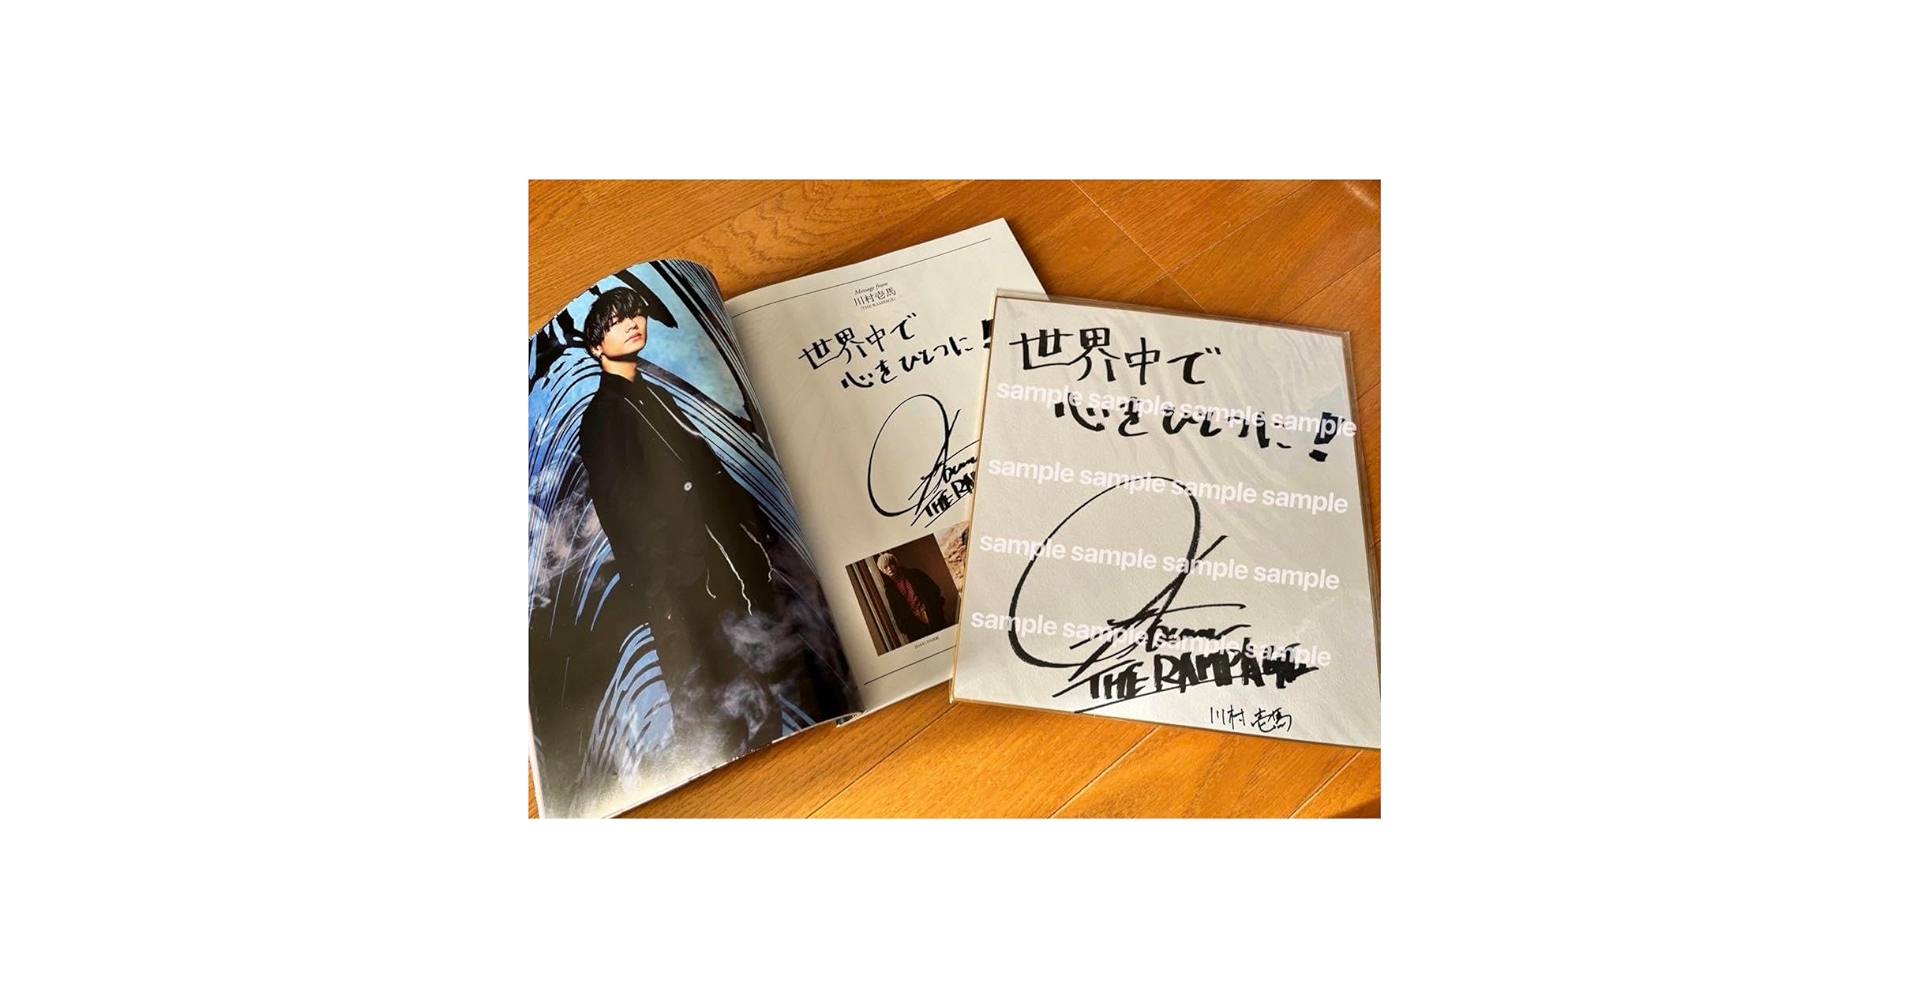 Message from
川村壱馬
(THE RAMPAGE)
世界中で
心をひとつに!
THE RA
世界中で
心をひとつに!
sample sample sample sample
sample sample sample sample
sample sample sample sample
sample sample sample sample
THE RAMPAGE
川村壱馬